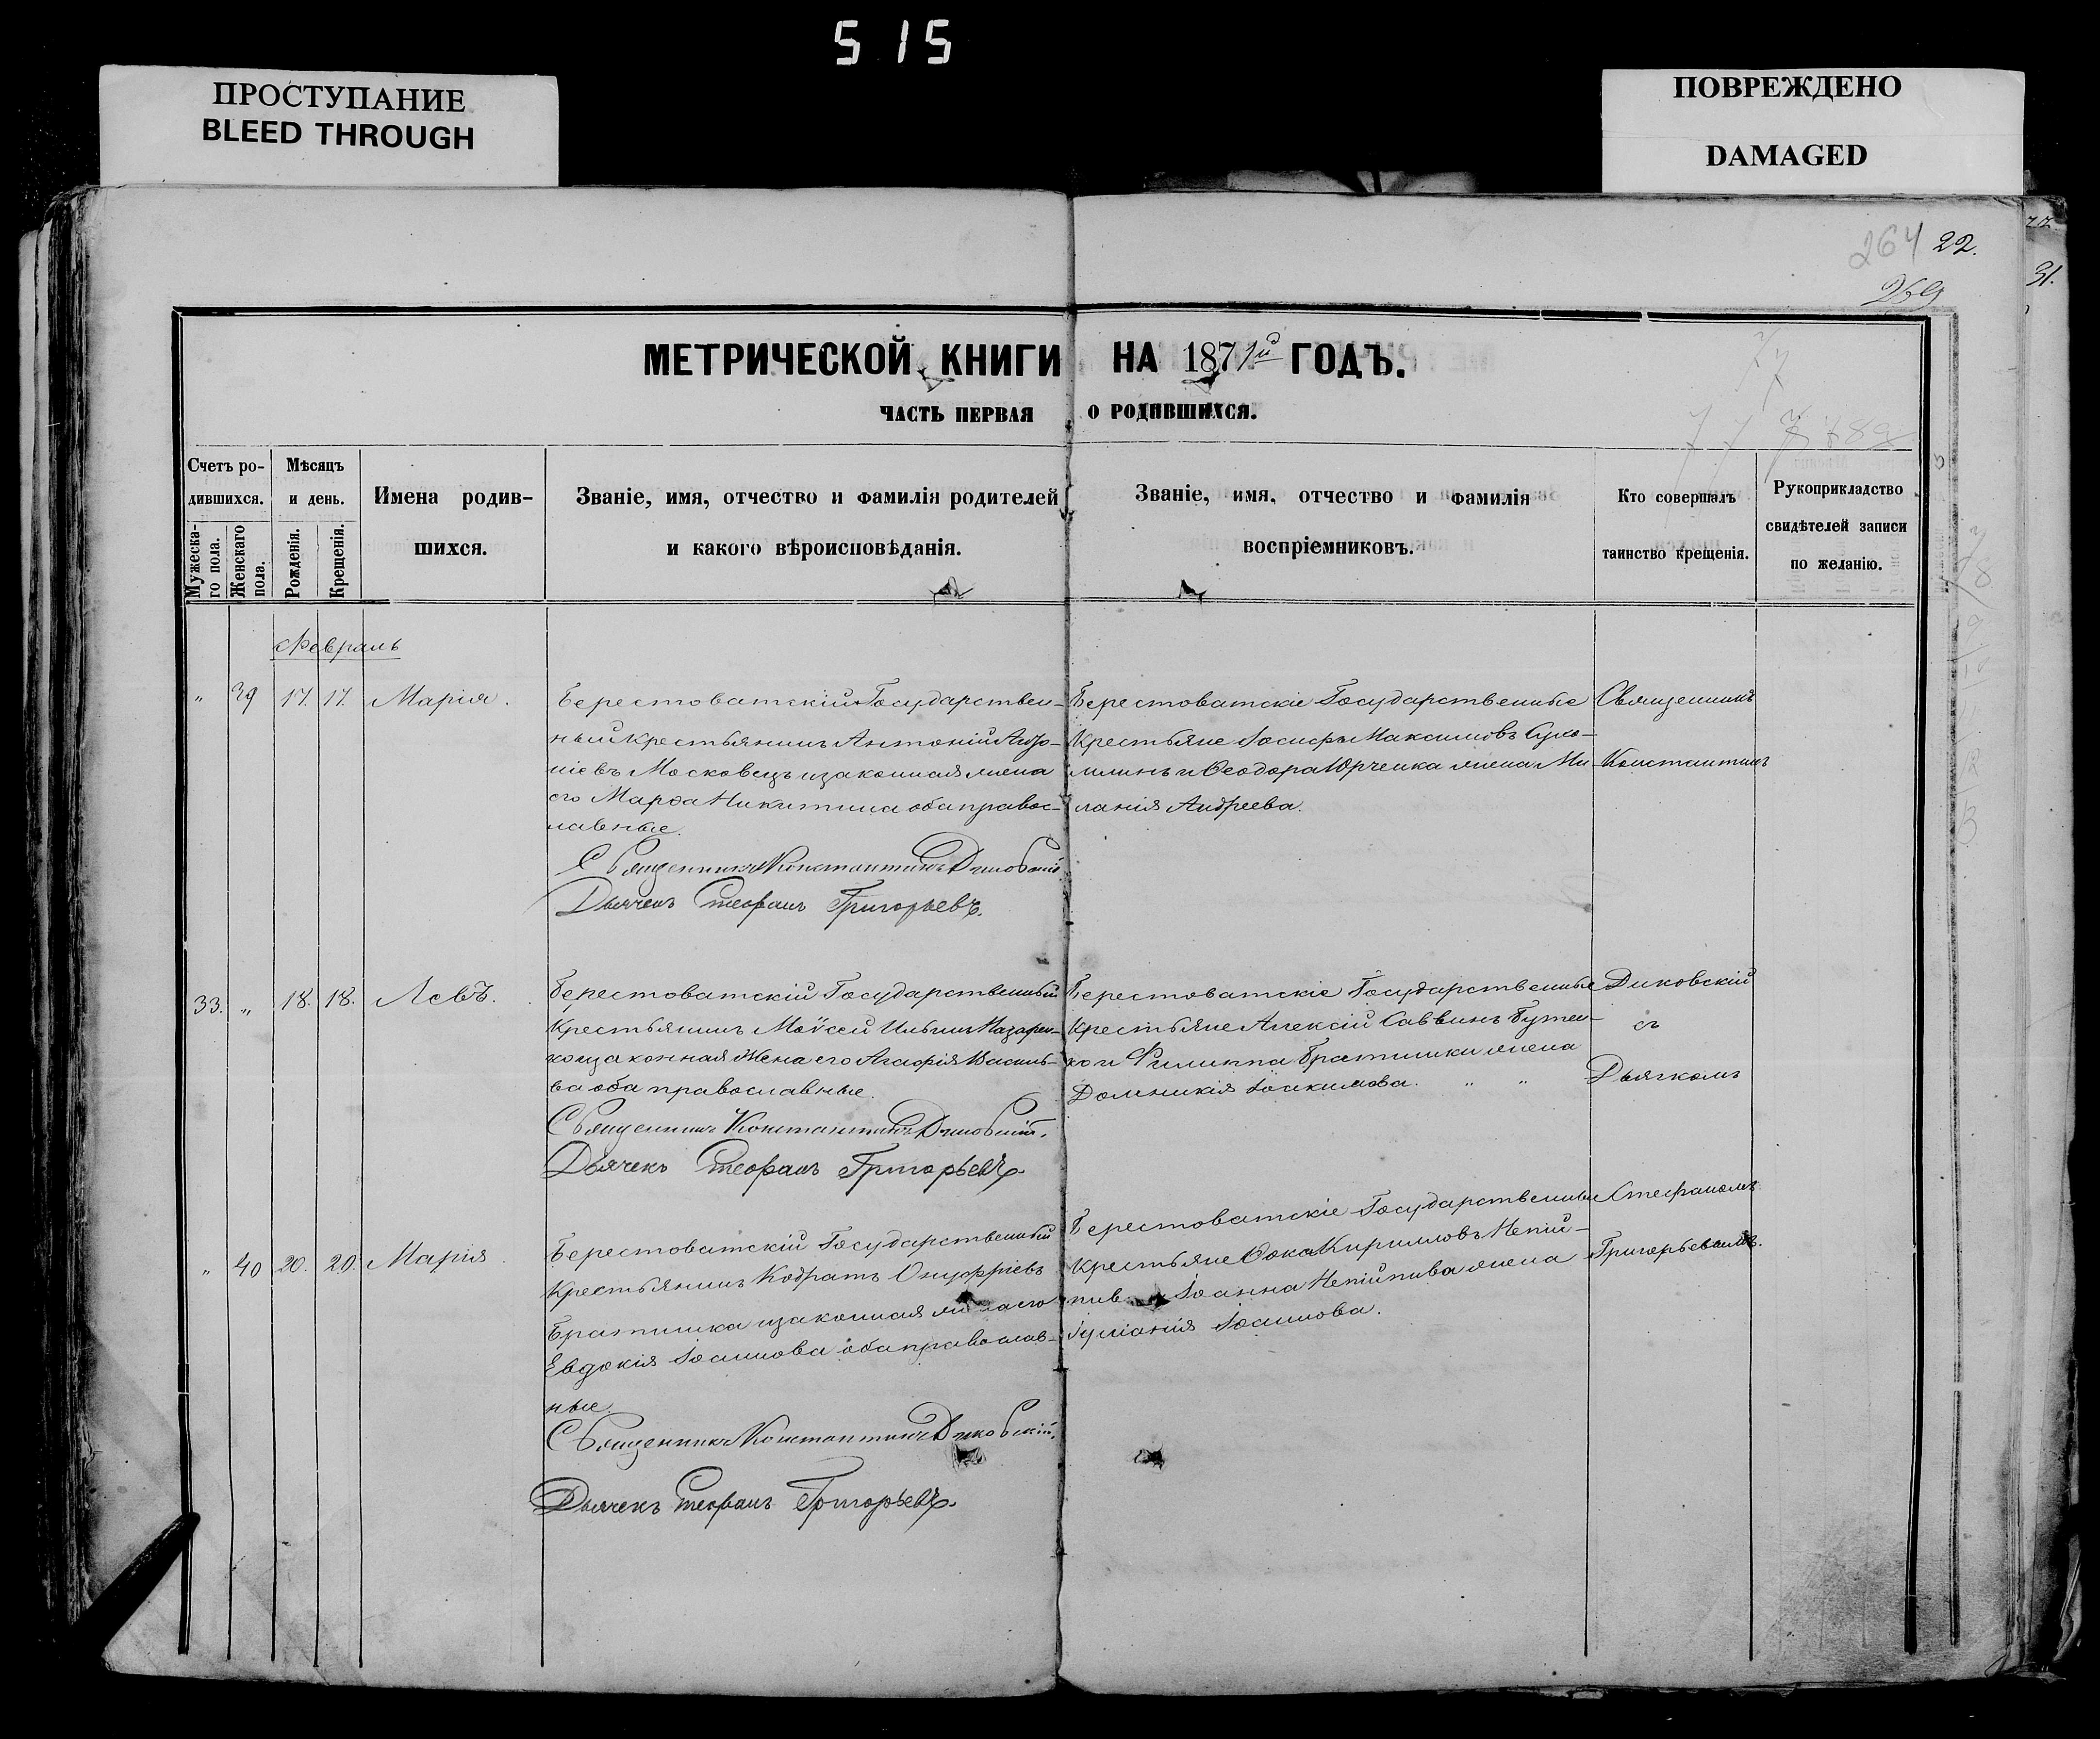 515
ПРОСТУПАНИЕ
BLEED THROUGH
ПОВРЕЖДЕНО
DAMAGED
264 22.
269
31.
МЕТРИЧЕСКОЙ КНИГИ НА 1871й ГОДЪ.
ЧАСТЬ ПЕРВАЯ О РОДИВШИХСЯ.
Счетъ ро-
дившихся.
Мужеска-
го пола.
Женскаго
пола.
Мѣсяцъ
и день.
Рожденія.
Крещенія.
Имена родив-
шихся.
Званіе, имя, отчество и фамилія родителей
и какого вѣроисповѣданія.
Званіе, имя, отчество и фамилія
воспріемниковъ.
Кто совершалъ
таинство крещенія.
Рукоприкладство
свидѣтелей записи
по желанію.
Февраль
" 39 17. 17. Марія.
Берестоватскій Государствен-
ный крестьянинъ Антоній
Московецъ и законная жена
его Марѳа Никитина оба правос-
лавные.
Священникъ Константинъ Диковскій.
Дьячекъ Стефанъ Григорьевъ.
Берестоватскіе Государственные
крестьяне Іосифъ Максимовъ
и Ѳеодора Юрченка жена Ми-
ланія Андреева.
Священникъ
Константинъ
33. " 18. 18. Левъ.
Берестоватскій Государственный
Крестьянинъ Моѵсей Ильинъ Назарен-
ко и законная Жена его Агафія Василь-
ва оба православные.
Священникъ Константинъ Диковскій.
Дьячекъ Стефанъ Григорьевъ.
Берестоватскіе Государственные
крестьяне Алексій Саввинъ Бутен-
ко и Филиппа Братишки жена
Домникія Іоакимова. " "
Диковскій
съ
Дьячкомъ
" 40 20. 20. Марія
Берестоватскій Государственный
Крестьянинъ Кодратъ Онуфріевъ
Братишка и законная жена его
Евдокія Іоаннова оба православ-
ные.
Священникъ Константинъ Диковскій.
Дьячекъ Стефанъ Григорьевъ.
Берестоватскіе Государственные
крестьяне Ѳока Кирилловъ Непій-
пив Іоанна Непійпива жена
Іуліанія Іоаннова.
Стефаномъ
Григорьевымъ.